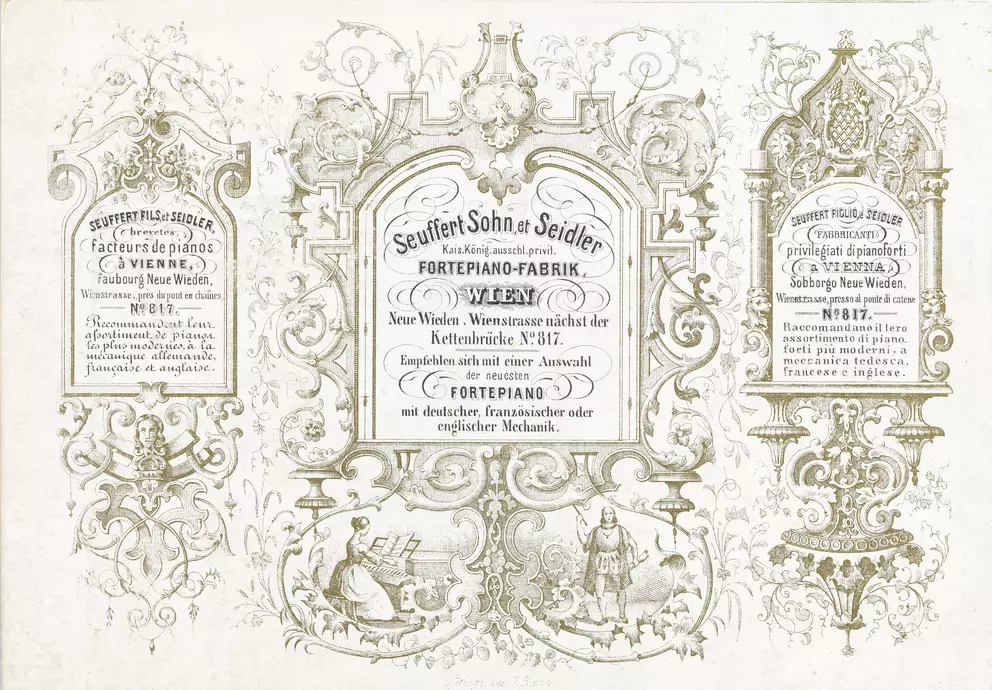 SEUFFERT FILS, et SEIDLER,
brevetés,
Facteurs de pianos
à VIENNE,
Faubourg Neue Wieden,
Wienstrasse, près du pont en chaines,
Nº 817.
Recommandent leur
assortiment de pianos
les plus modernes, à la
mécanique allemande,
française et anglaise.
Seuffert Sohn, et Seidler
Kais. König. ausschl. privil.
FORTEPIANO-FABRIK,
WIEN
Neue Wieden, Wienstrasse nächst der
Kettenbrücke Nº 817.
Empfehlen sich mit einer Auswahl
der neuesten
FORTEPIANO
mit deutscher, französischer oder
englischer Mechanik.
SEUFFERT FIGLIO, e SEIDLER
FABBRICANTI
privilegiati di pianoforti
a VIENNA,
Sobborgo Neue Wieden,
Wienstrasse, presso al ponte di catene
Nº 817.
Raccomandano il lero
assortimento di piano.
forti più moderni, a
meccanica tedesca,
francese e inglese.